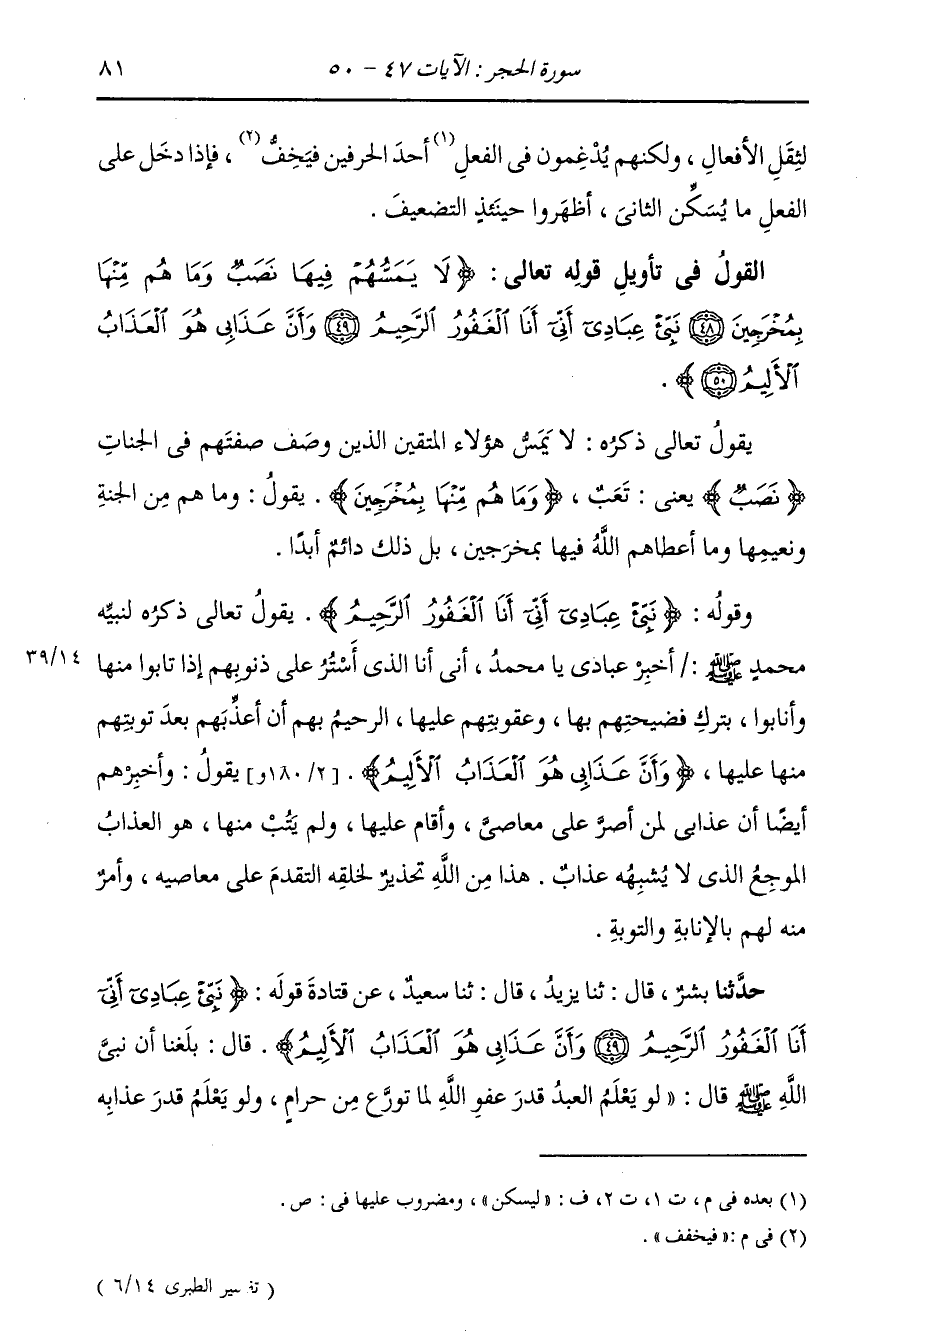 سورة الحجر : الآيات ٤٧ - ٥٠ ٨١
لثِقَلِ الأفعالِ ، ولكنهم يُدْغِمون فى الفعلِ(١) أحدَ الحرفين فيَخِفُّ(٢) ، فإذا دخَل على
الفعلِ ما يُسَكِّن الثانىَ ، أظهَروا حينَئذٍ التضعيفَ .
القولُ فى تأويلِ قولِه تعالى : ﴿ لَا يَمَسُّهُمْ فِيهَا نَصَبٌ وَمَا هُم مِّنْهَا
بِمُخْرَجِينَ ﴿٤٨﴾ نَبِّئْ عِبَادِىٓ أَنِّىٓ أَنَا ٱلْغَفُورُ ٱلرَّحِيمُ ﴿٤٩﴾ وَأَنَّ عَذَابِى هُوَ ٱلْعَذَابُ
ٱلْأَلِيمُ ﴿٥٠﴾ ﴾ .
يقولُ تعالى ذكرُه : لا يَمَسُّ هؤلاء المتقين الذين وصَف صفتَهم فى الجناتِ
﴿ نَصَبٌ ﴾ يعنى : تَعَبٌ ، ﴿ وَمَا هُم مِّنْهَا بِمُخْرَجِينَ ﴾ . يقولُ : وما هم مِن الجنةِ
ونعيمِها وما أعطاهم اللَّهُ فيها بمخرَجين ، بل ذلك دائمٌ أبدًا .
وقولُه : ﴿ نَبِّئْ عِبَادِىٓ أَنِّىٓ أَنَا ٱلْغَفُورُ ٱلرَّحِيمُ ﴾ . يقولُ تعالى ذكرُه لنبيِّه
محمدٍ ﷺ : / أخبِرْ عبادى يا محمدُ ، أنى أنا الذى أَسْتُرُ على ذنوبِهم إذا تابوا منها ٣٩/١٤
وأنابوا ، بتركِ فضيحتِهم بها ، وعقوبتِهم عليها ، الرحيمُ بهم أن أعذِّبَهم بعدَ توبتِهم
منها عليها ، ﴿ وَأَنَّ عَذَابِى هُوَ ٱلْعَذَابُ ٱلْأَلِيمُ ﴾ . [١٨٠/٢و] يقولُ : وأخبِرْهم
أيضًا أن عذابى لمن أصرَّ على معاصىَّ ، وأقام عليها ، ولم يَتُبْ منها ، هو العذابُ
الموجِعُ الذى لا يُشبِهُه عذابٌ . هذا مِن اللَّهِ تحذيرٌ لخلقِه التقدمَ على معاصيه ، وأمرٌ
منه لهم بالإنابةِ والتوبةِ .
حدَّثنا بشرٌ ، قال : ثنا يزيدُ ، قال : ثنا سعيدٌ ، عن قتادةَ قولَه : ﴿ نَبِّئْ عِبَادِىٓ أَنِّىٓ
أَنَا ٱلْغَفُورُ ٱلرَّحِيمُ ﴿٤٩﴾ وَأَنَّ عَذَابِى هُوَ ٱلْعَذَابُ ٱلْأَلِيمُ ﴾ . قال : بلَغنا أن نبىَّ
اللَّهِ ﷺ قال : « لو يَعْلَمُ العبدُ قدرَ عفوِ اللَّهِ لما تورَّع مِن حرامٍ ، ولو يَعْلَمُ قدرَ عذابِه
(١) بعده فى م ، ت ١، ت ٢، ف : « ليسكن » ، ومضروب عليها فى : ص .
(٢) فى م : « فيخفف » .
( تفسير الطبرى ٦/١٤ )